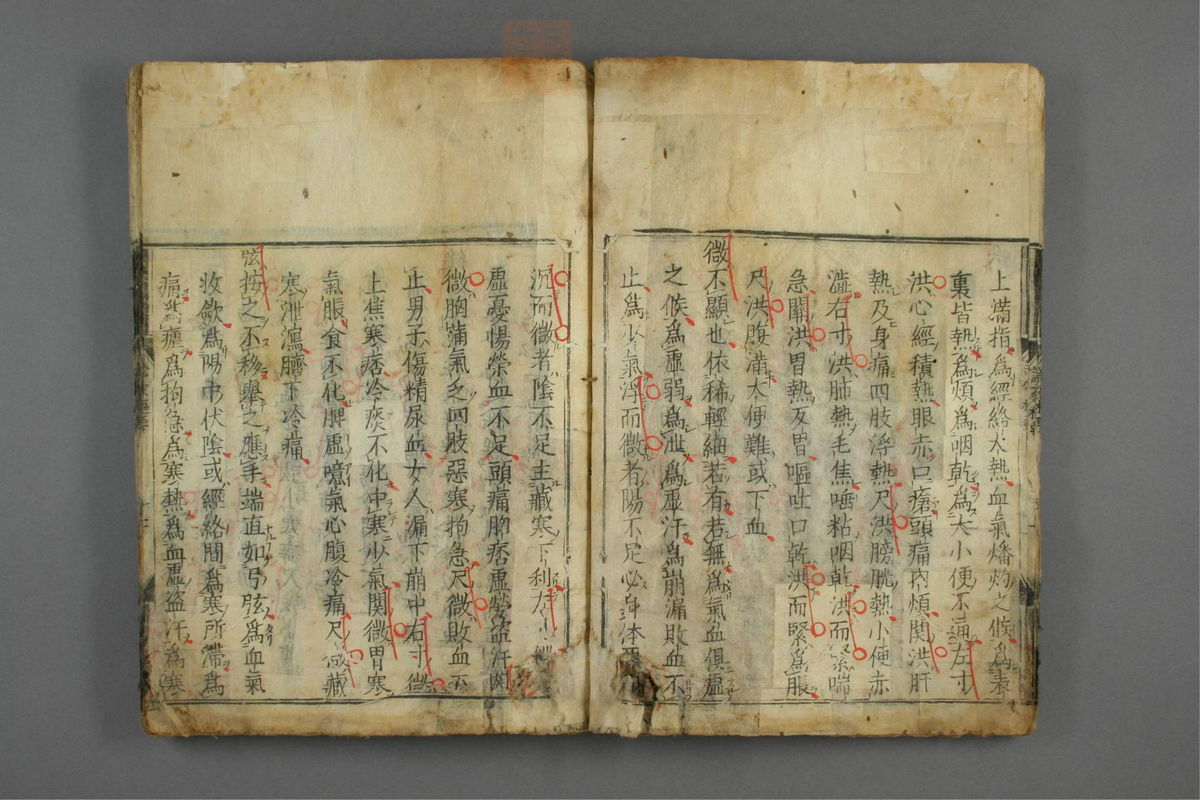 上滿指為經絡大熱血氣燔灼之候為表
裏皆熱為煩為咽乾為大小便不通左寸
洪心經積熱眼赤口瘡頭痛內煩関洪肝
熱及身痛四肢浮熱尺洪膀胱熱小便赤
澁右寸洪肺熱毛焦唾粘咽乾洪而緊喘
急關洪胃熱反胃嘔吐口乾洪而緊為脹
尺洪腹滿大便難或下血
微不顯也依稀輕細若有若無為氣血俱虛
之候為虛弱為泄為虛汗為崩漏敗血不
止為少氣浮而微者陽不足必身体惡
沉而微者陰不足主藏寒下利左寸微
虛憂惕榮血不足頭痛胸痞虛勞盗汗関
微胸滿氣乏四肢惡寒拘急尺微敗血不
止男子傷精尿血女人漏下崩中右寸微
上焦寒痞冷痰不化中寒少氣関微胃寒
氣脹食不化脾虛噫氣心腹冷痛尺微藏
寒泄瀉臍下冷痛
弦按之不移舉之應手端直如弓弦為血氣
收歛為陽中伏陰或經絡間為寒所滯為
痛為瘧為拘急為寒熱為血虛盗汗為寒